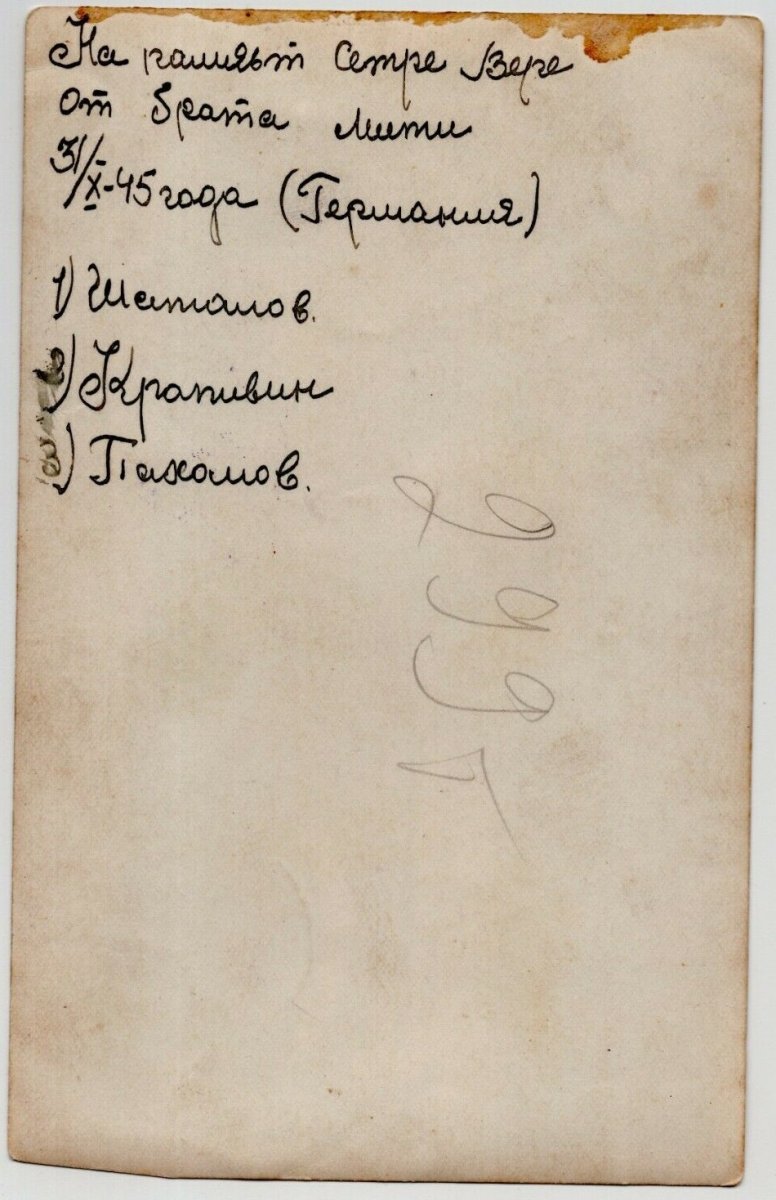 На памяьт Сетре Вере
от брата Мити
31/X-45 года (Германия)
1) Шаталов.
2) Крапивин
3) Пахомов.